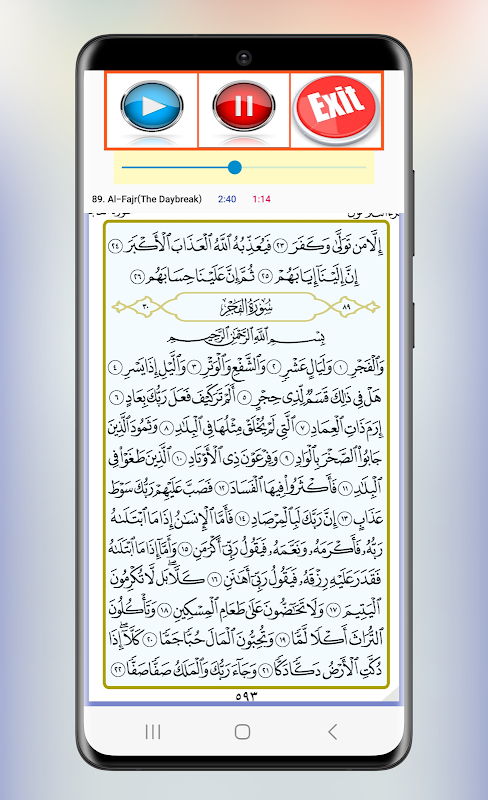 Exit
89. Al-Fajr(The Daybreak) 2:40 1:14
إِلَّا مَن تَوَلَّىٰ وَكَفَرَ ٢٣ فَيُعَذِّبُهُ اللَّهُ الْعَذَابَ الْأَكْبَرَ ٢٤
إِنَّ إِلَيْنَا إِيَابَهُمْ ٢٥ ثُمَّ إِنَّ عَلَيْنَا حِسَابَهُم ٢٦
٨٩ سُورَةُ الفَجْرِ ٣٠
بِسْمِ اللَّهِ الرَّحْمَٰنِ الرَّحِيمِ
وَالْفَجْرِ ١ وَلَيَالٍ عَشْرٍ ٢ وَالشَّفْعِ وَالْوَتْرِ ٣ وَاللَّيْلِ إِذَا يَسْرِ ٤
هَلْ فِي ذَٰلِكَ قَسَمٌ لِّذِي حِجْرٍ ٥ أَلَمْ تَرَ كَيْفَ فَعَلَ رَبُّكَ بِعَادٍ ٦
إِرَمَ ذَاتِ الْعِمَادِ ٧ الَّتِي لَمْ يُخْلَقْ مِثْلُهَا فِي الْبِلَادِ ٨ وَثَمُودَ الَّذِينَ
جَابُوا الصَّخْرَ بِالْوَادِ ٩ وَفِرْعَوْنَ ذِي الْأَوْتَادِ ١٠ الَّذِينَ طَغَوْا فِي
الْبِلَادِ ١١ فَأَكْثَرُوا فِيهَا الْفَسَادَ ١٢ فَصَبَّ عَلَيْهِمْ رَبُّكَ سَوْطَ
عَذَابٍ ١٣ إِنَّ رَبَّكَ لَبِالْمِرْصَادِ ١٤ فَأَمَّا الْإِنسَانُ إِذَا مَا ابْتَلَاهُ
رَبُّهُ فَأَكْرَمَهُ وَنَعَّمَهُ فَيَقُولُ رَبِّي أَكْرَمَنِ ١٥ وَأَمَّا إِذَا مَا ابْتَلَاهُ
فَقَدَرَ عَلَيْهِ رِزْقَهُ فَيَقُولُ رَبِّي أَهَانَنِ ١٦ كَلَّا بَل لَّا تُكْرِمُونَ
الْيَتِيمَ ١٧ وَلَا تَحَاضُّونَ عَلَىٰ طَعَامِ الْمِسْكِينِ ١٨ وَتَأْكُلُونَ
التُّرَاثَ أَكْلًا لَّمًّا ١٩ وَتُحِبُّونَ الْمَالَ حُبًّا جَمًّا ٢٠ كَلَّا إِذَا
دُكَّتِ الْأَرْضُ دَكًّا دَكًّا ٢١ وَجَاءَ رَبُّكَ وَالْمَلَكُ صَفًّا صَفًّا ٢٢
٥٩٣